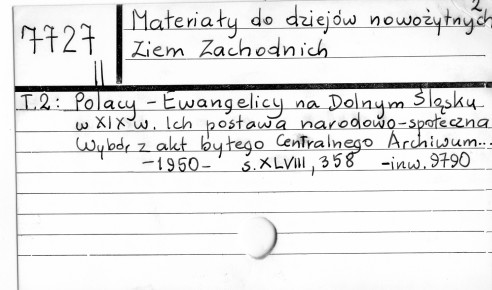 2
7727
II
Materiały do dziejów nowożytnych
Ziem Zachodnich
T.2: Polacy - Ewangelicy na Dolnym Śląsku
w XIX w. Ich postawa narodowo-społeczna
Wybór z akt byłego Centralnego Archiwum...
-1950- s. XLVIII, 358 -inw. 9790